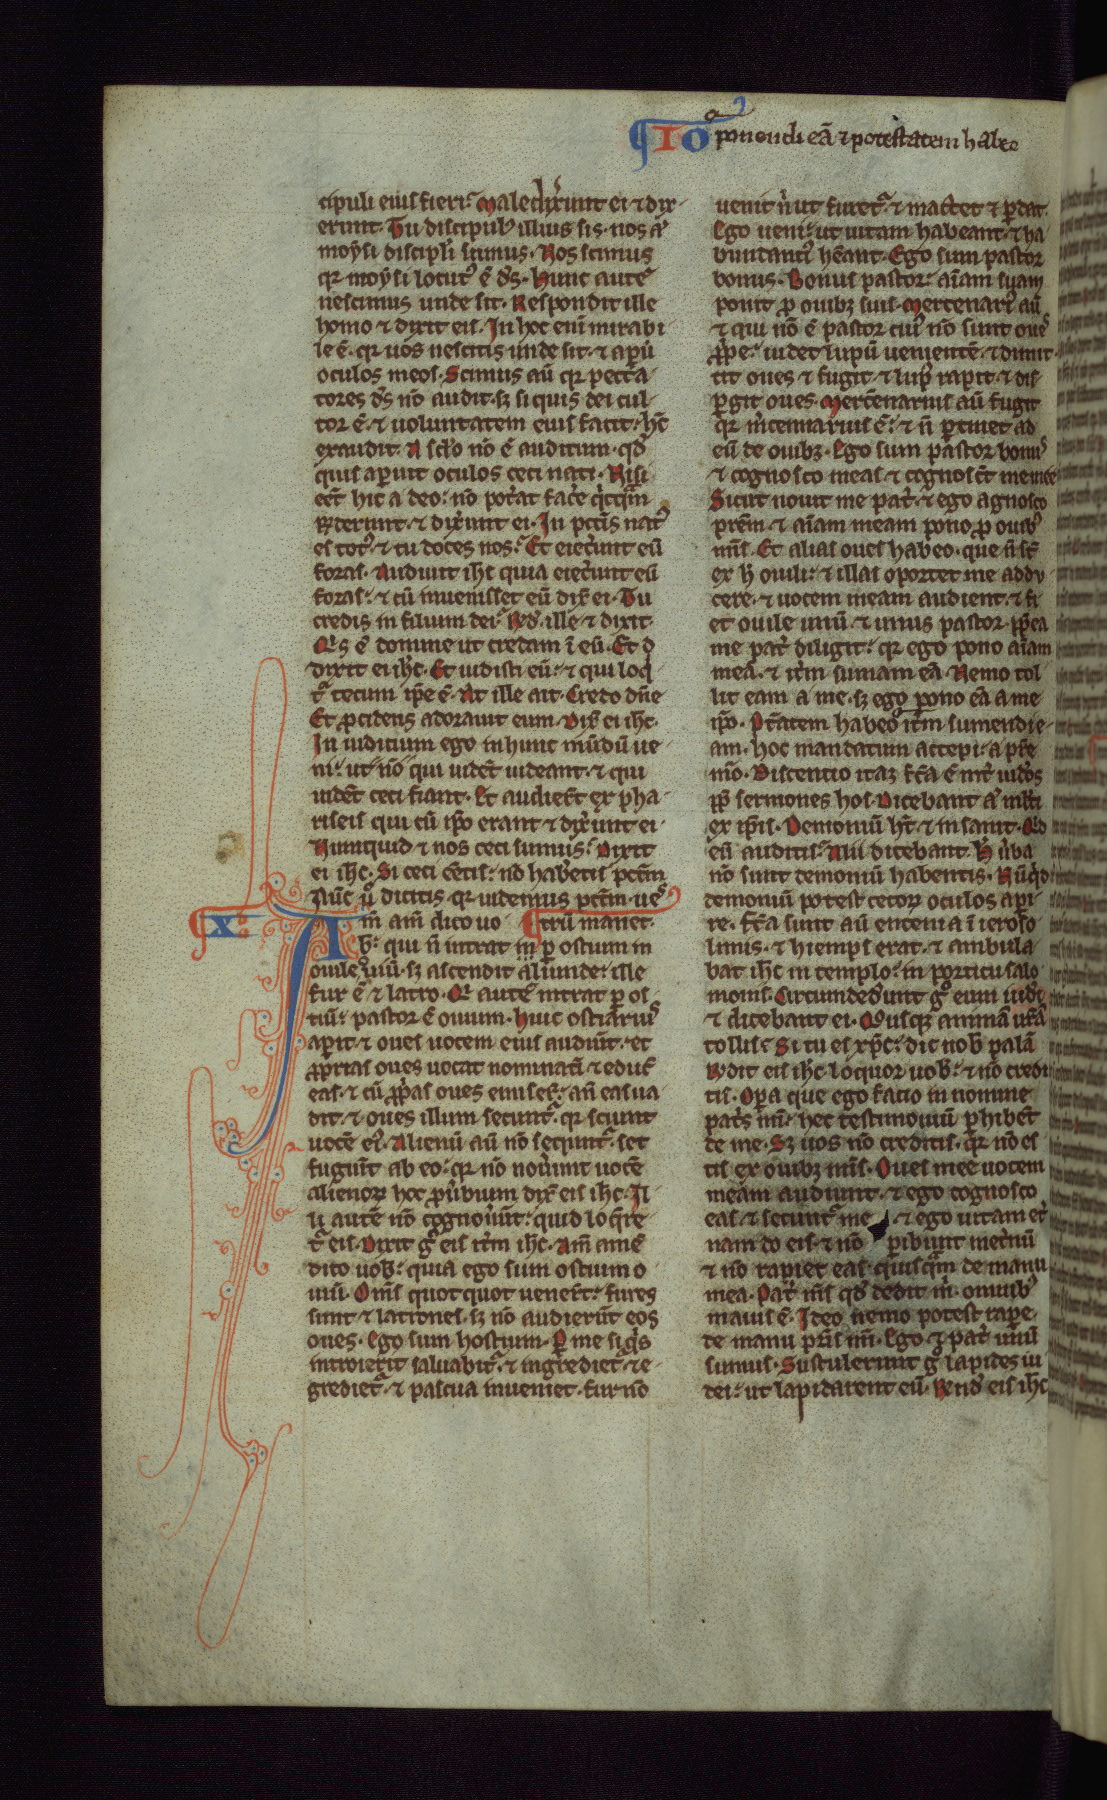 IO
ponendi eā ⁊ potestatem habeo
cipuli eius fieri? Maledixerunt ei ⁊ dix-
erunt. Tu discipulꝰ illius sis. nos aͥ
moysi discipli sumus. Nos scimus
qr moysi locutꝰ ē ds̄. Hunc autē
nescimus unde sit. Respondit ille
homo ⁊ dixit eis. In hoc enī mirabi
le ē. qr uos nescitis unde sit. ⁊ apuit
oculos meos. Scimus aū qr pecca-
tores ds̄ nō audit. sꝫ si quis dei cul-
tor ē. ⁊ uoluntatem eius facit: hc̄
exaudit. A sclo nō ē auditum. qd
quis apuit oculos ceci nati. Nisi
eēt hic a deo: nō potat face qicqm̄
Rnderunt. ⁊ dixunt ei. In pctis natꝰ
es totꝰ. ⁊ tu doces nos? Et eiecunt eū
foras. Audiuit ihc quia eiecunt eū
foras: ⁊ cū inuenisset eū dix̄ ei. Tu
credis in filium dei? Rnd. ille ⁊ dixit.
Qis ē domine ut credam ī eū. Et
dixit ei ihc. Et uidisti eū: ⁊ qui loq
tr̄ tecum ipe ē. At ille ait. Credo dn̄e
Et pcidens adorauit eum. Dix̄ ei ihc.
In iudicium ego in hunc mūdū ue-
ni: ut nō qui uidēt uideant. ⁊ qui
uidēt ceci fiant. Et audierūt ex pha-
riseis qui cū ipo erant ⁊ dixunt ei.
Numquid ⁊ nos ceci sumus? Dixit
ei ihc. Si ceci eetis: nō haberetis pctm̄
Nūc ū dicitis. qr uidemus pctm̄. ues
x Am̄ am̄ dico uo- trum manet.
b: qui n̄ intrat p ostium in
ouile ouiū. sꝫ ascendit aliunde: ille
fur ē ⁊ latro. Qi autē intrat p os-
tiū: pastor ē ouium. Huic ostiariꝰ
aperit ⁊ oues uocem eius audiūt. et
pprias oues uocat nominatī ⁊ educit
eas. ⁊ cū ppas oues emiserit: an̄ eas ua
dit. ⁊ oues illum secuntr. qr sciunt
uocē eiꝰ. Alienū aū nō sequntr. set
fugiūt ab eo: qr nō nouunt uocē
alienoꝝ hoc puerbium dix̄ eis ihc. Il
li autē nō cognouūt: quid loqre
tr̄ eis. Dixit g eis itm̄ ihc. Am̄ amē
dico uob: quia ego sum ostium o
uiū. Om̄s quotquot uenerūt: fures
sunt ⁊ latrones. sꝫ nō audierūt eos
oues. Ego sum hostium. P me si qis
introierit saluabitr. ⁊ ingredietr ⁊ e-
gredietr. ⁊ pascua inueniet. fur nō
uenit n̄ ut furetr. ⁊ mactet ⁊ pdat
Ego ueni: ut uitam habeant. ⁊ ha
bundantiꝰ heant. Ego sum pastor
bonus. Bonus pastor: aīam suam
ponit p ouibꝫ suis. Mercenariꝰ aū
⁊ qui nō ē pastor cuiꝰ nō sunt oues
ppe: uidet lupū uenientē. ⁊ dimit
tit oues ⁊ fugit. ⁊ lupꝰ rapit. ⁊ dis
pgit oues. Mercenarius aū fugit
qr mcennarius ē. ⁊ n̄ ptinet ad
eū de ouibꝫ. Ego sum pastor bonꝰ
⁊ cognosco meas ⁊ cognoscūt me mee
Sicut nouit me pat ⁊ ego agnosco
prem̄ ⁊ aīam meam pono p ouibꝰ
meis. Et alias oues habeo. que n̄ st̄
ex h ouili: ⁊ illas oportet me addu
cere. ⁊ uocem meam audient. ⁊ fi
et ouile unū. ⁊ unus pastor. ppea
me pat diligit: qr ego pono aīam
meā. ⁊ itm̄ sumam eā. Nemo tol
lit eam a me. sꝫ ego pono eā a me
ipo. Ptatem habeo itm̄ sumendi e-
am. hoc mandatum accepi: a pre
mo. Discentio itaꝫ fc̄a ē int iudos
pp sermones hos. Dicebant aͥ multi
ex ipis. Demoniū ht ⁊ insanit. Qid
eū auditis? Alii dicebant. H uba
nō sunt demoniū habentis. Nūqid
demoniū potest cecoꝝ oculos api
re. Fc̄a sunt aū encenia ī ieroso
limis. ⁊ hiemps erat. ⁊ ambula
bat ihc in templo: in porticu salo
monis. Circumdedunt g eum iudei
⁊ dicebant ei. Quisqꝫ animā nrā
tollis? Si tu es xpc: dic nob palā
Rndit eis ihc. loquor uob: ⁊ nō credi
tis. Opa que ego facio in nomine
patris mei: hec testimoniū phibent
de me. Sꝫ uos nō creditis. qr nō es
tis ex ouibꝫ meis. Oues mee uocem
meam audiunt. ⁊ ego cognosco
eas. ⁊ secuntr me ⁊ ego uitam et
nam do eis. ⁊ nō pibunt inetnū
⁊ nō rapiet eas quisqm̄ de manu
mea. Pat ms̄ qd dedit m. omnibꝰ
maius ē. Ideo nemo potest rape
de manu pris mei. Ego ⁊ pat unū
sumus. Sustulerunt g lapides iu
dei: ut lapidarent eū. Rnd eis ihc